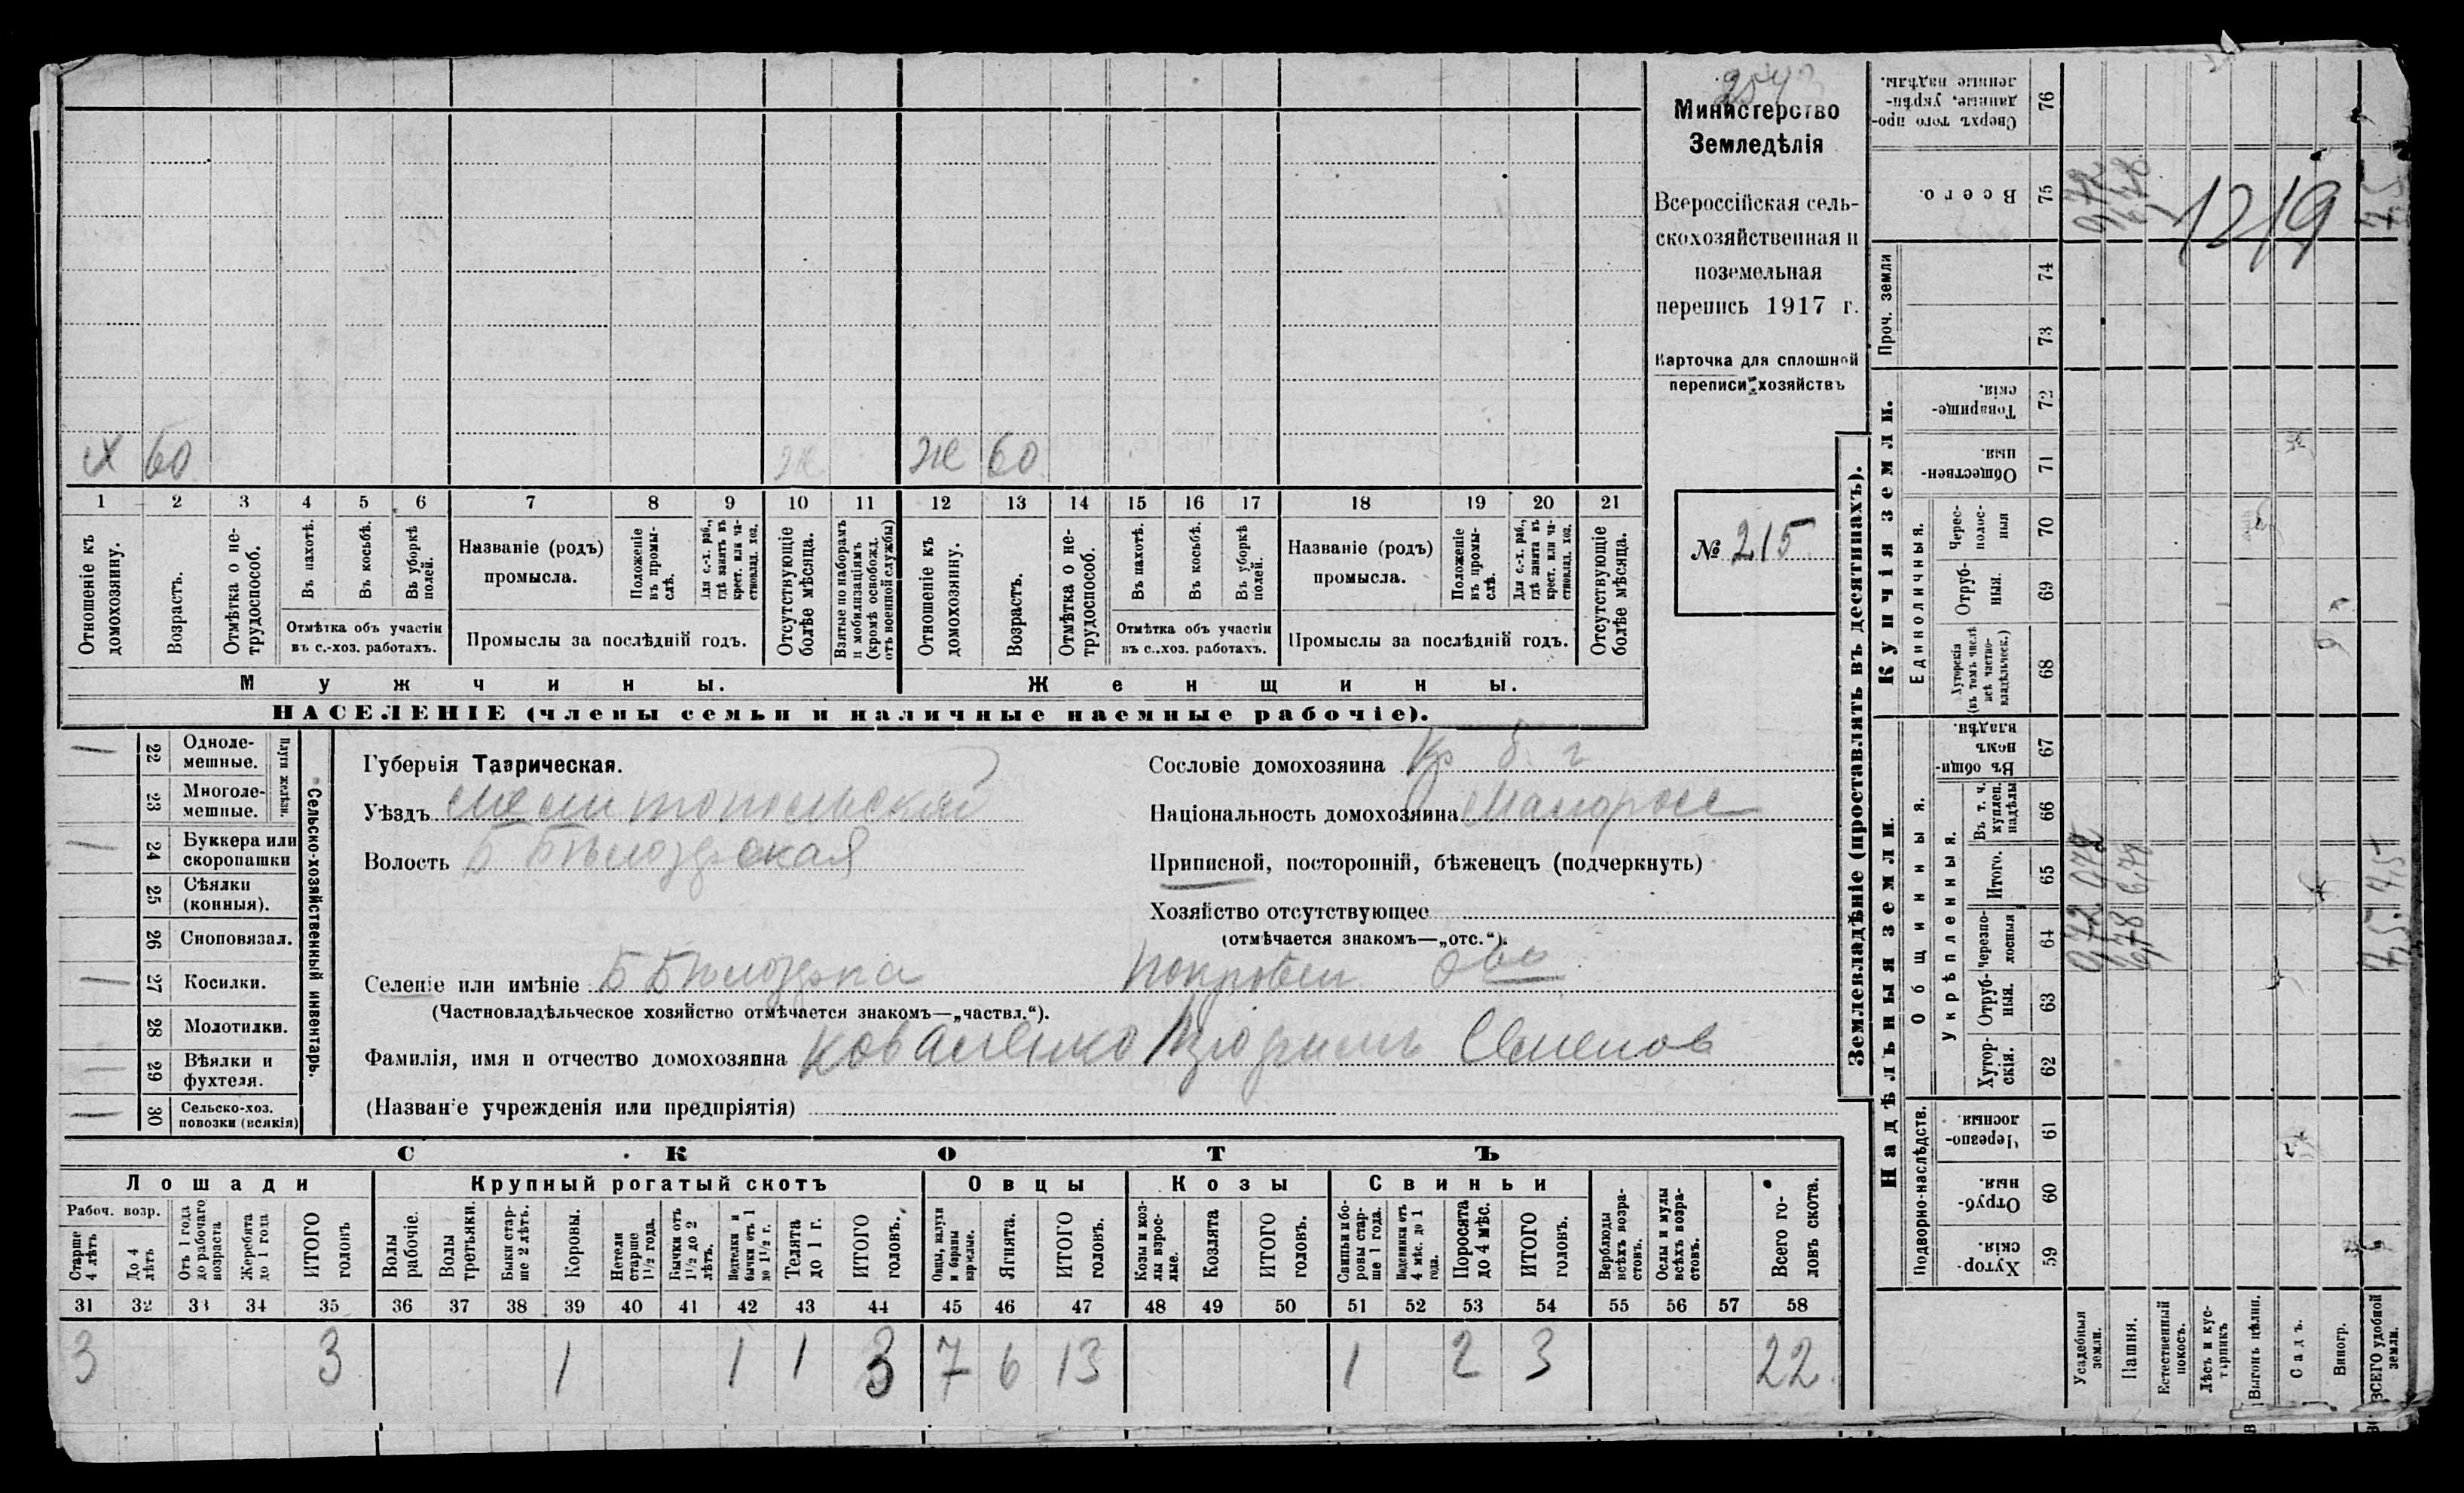 Министерство
Земледѣлія
Всероссійская сель-
скохозяйственная и
поземельная
перепись 1917 г.
Карточка для сплошной
переписи хозяйствъ
№ 215
х 60 ж 60
1 2 3 4 5 6 7 8 9 10 11 12 13 14 15 16 17 18 19 20 21
Отношеніе къ домохозяину.
Возрастъ.
Отмѣтка о не-трудоспособ.
Въ пахотѣ.
Въ косьбѣ.
Въ уборкѣ полей.
Отмѣтка объ участіи
въ с.-хоз. работахъ.
Названіе (родъ)
промысла.
Положеніе въ промы-слѣ.
Для с.-х. раб., гдѣ занятъ въ крест. или ча-стновлад. хоз.
Промыслы за послѣдній годъ.
Отсутствующіе болѣе мѣсяца.
Взятые по наборамъ и мобилизаціямъ (кромѣ освобожд. отъ военной службы)
Отношеніе къ домохозяину.
Возрастъ.
Отмѣтка о не-трудоспособ.
Въ пахотѣ.
Въ косьбѣ.
Въ уборкѣ полей.
Отмѣтка объ участіи
въ с.-хоз. работахъ.
Названіе (родъ)
промысла.
Положеніе въ промы-слѣ.
Для с.-х. раб., гдѣ занята въ крест. или ча-стновлад. хоз.
Промыслы за послѣдній годъ.
Отсутствующіе болѣе мѣсяца.
Мужчины. Женщины.
НАСЕЛЕНІЕ (члены семьи и наличные наемные рабочіе).
Сельско-хозяйственный инвентарь.
Плуги желѣзн.
22 Одноле-мешные.
23 Многоле-мешные.
24 Буккера или скоропашки
25 Сѣялки (конныя).
26 Сноповязал.
27 Косилки.
28 Молотилки.
29 Вѣялки и фухтеля.
30 Сельско-хоз. повозки (всякія)
Губернія Таврическая.
Уѣздъ Мелитопольскій
Волость Б Бѣлозерская
Сословіе домохозяина Кр
Національность домохозяина Малоросс
Приписной, посторонній, бѣженецъ (подчеркнуть)
Хозяйство отсутствующее
(отмѣчается знакомъ—„отс.“).
Селеніе или имѣніе Б Бѣлозерка Покровск. Ово
(Частновладѣльческое хозяйство отмѣчается знакомъ—„частвл.“).
Фамилія, имя и отчество домохозяина Коваленко Семенов
(Названіе учрежденія или предпріятія)
СКОТЪ
Лошади Крупный рогатый скотъ Овцы Козы Свиньи
Рабоч. возр.
Старше 4 лѣтъ
До 4 лѣтъ
Отъ 1 года до рабочаго возраста
Жеребята до 1 года
ИТОГО головъ
Волы рабочіе.
Волы третьянки.
Быки стар-ше 2 лѣтъ.
Коровы.
Нетели старше 1½ года.
Бычки отъ 1½ до 2 лѣтъ.
Подтелки и бычки отъ 1 до 1½ г.
Телята до 1 г.
ИТОГО головъ.
Овцы, валухи и бараны взрослые.
Ягнята.
ИТОГО головъ.
Козы и коз-лы взрос-лые.
Козлята
ИТОГО головъ.
Свиньи и бо-ровы стар-ше 1 года.
Подсвинки отъ 4 мѣс. до 1 года.
Поросята до 4 мѣс.
ИТОГО головъ.
Верблюды всѣхъ возра-стовъ.
Ослы и мулы всѣхъ возра-стовъ.
Всего го-ловъ скота.
31 32 33 34 35 36 37 38 39 40 41 42 43 44 45 46 47 48 49 50 51 52 53 54 55 56 57 58
3 3 1 1 1 3 7 6 13 1 2 3 22
Землевладѣніе (проставлять въ десятинахъ).
Надѣльныя земли. Купчія земли. Проч. земли
Подворно-наслѣдств. Общинныя. Укрѣпленныя. Единоличныя.
Хутор-скія. 59
Отруб-ныя. 60
Черезпо-лосныя 61
Хутор-скія. 62
Отруб-ныя. 63
Черезпо-лосныя 64
Итого. 65
Въ т. ч. куплен. надѣлы 66
Въ общин-номъ владѣн. 67
Хуторскія (въ томъ числѣ всѣ частно-владѣльческ.) 68
Отруб-ныя. 69
Черес-полос-ныя 70
Обществен-ныя. 71
Товарище-скія. 72
73
74
Всего. 75
Сверхъ того про-данные, укрѣп-ленные надѣлы. 76
Усадебныя земли. 0,72 0,72 0,72
Пашня. 6,78 6,78 6,78
Естественный покосъ.
Лѣсъ и кус-тарникъ
Выгонъ цѣлин.
Садъ.
Виногр.
ВСЕГО удобной земли. 7,5 7,5 7,5
1219